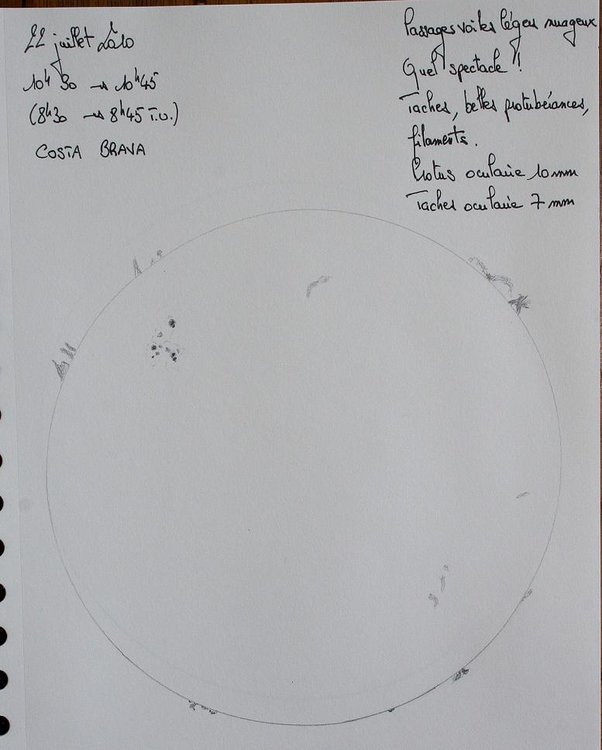 22 juillet 2010
10h30 → 10h45
(8h30 → 8h45 T.U.)
COSTA BRAVA
Passages voiles légers nuageux
Quel spectacle !
Taches, belles protubérances,
filaments.
Protus oculaire 10 mm
Taches oculaire 7 mm